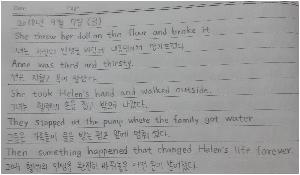 Date Page
2018년 9월 7일 (금)
She threw her doll on the floor and broke it.
그녀는 인형을 바닥에
Anne was tired and thirsty.
앤은 지쳤고 목이 말랐다.
She took Helen's hand and walked outside.
그녀는 헬렌의 손을 잡고 밖으로 나갔다.
They stopped at the pump where the family got water.
그들은 가족들이 물을 받는 펌프 앞에 멈춰 섰다.
Then something happened that changed Helen's life forever.
그때 헬렌의 인생을 완전히 바꿔놓을 어떤 일이 벌어졌다.